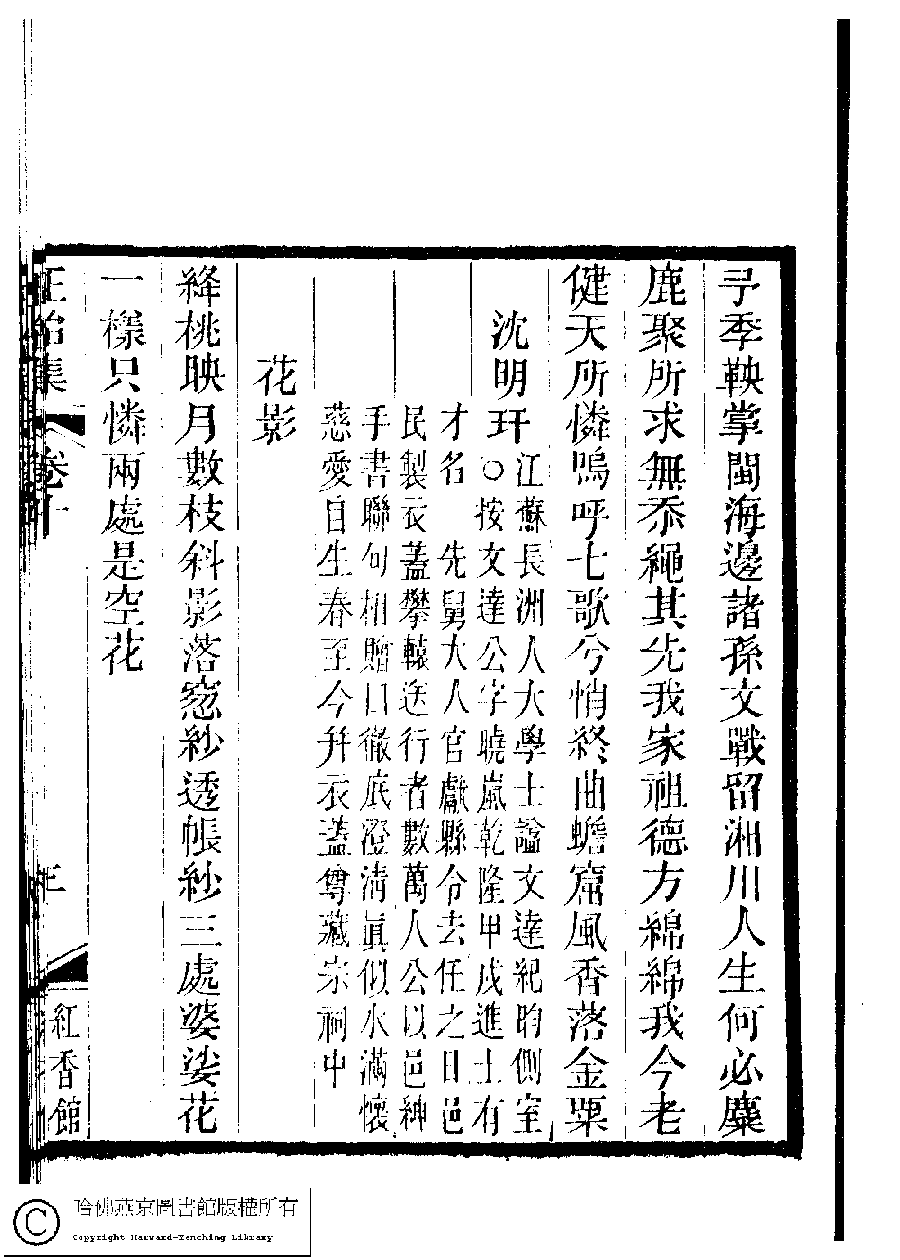 子季鞅掌閩海邊諸孫文戰留湘川人生何必麋
鹿聚所求無忝繩其先我家祖德方綿綿我今老
健天所憐嗚呼七歌兮悄終曲蟾窟風香落金粟
沈明玕
江蘇長洲人大學士諡文達紀昀側室
○按文達公字曉嵐乾隆甲戌進士有
才名 先舅大人官獻縣令去任之日邑
民製衣蓋攀轅送行者數萬人公以邑紳
手書聯句相贈曰徹底澄清眞似水滿懷
慈愛自生春至今幷衣蓋尊藏宗祠中
花影
絳桃映月數枝斜影落窓紗透帳紗三處婆娑花
一樣只憐兩處是空花
正始集 卷十 五 紅香館
哈佛燕京圖書館版權所有
Copyright Harvard-Yenching Library